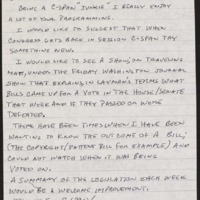 BEING A C-SPAN "JUNKIE" I REALLY ENJOY
A LOT OF YOUR PROGRAMMING.
I WOULD LIKE TO SUGGEST THAT WHEN
CONGRESS GETS BACK IN SESSION C-SPAN TRY
SOMETHING NEW.
I WOULD LIKE TO SEE A SHOW, ON TRAVELING
MAYBE UNDER THE FRIDAY WASHINGTON JOURNAL
SHOW THAT EXPLAINS IN LAYMAN'S TERMS WHAT
BILLS CAME UP FOR A VOTE IN THE HOUSE/SENATE
THAT WEEK AND IF THEY PASSED OR WERE
DEFEATED.
THERE HAVE BEEN TIMES WHEN I HAVE BEEN
WAITING TO KNOW THE OUTCOME OF A BILL,
(THE COPYRIGHT/PATTENT BILL FOR EXAMPLE) AND
COULD NOT WATCH WHEN IT WAS BEING
VOTED ON.
A SUMMARY OF THE LEGISLATION EACH WEEK
WOULD BE A WELCOME IMPROVEMENT.